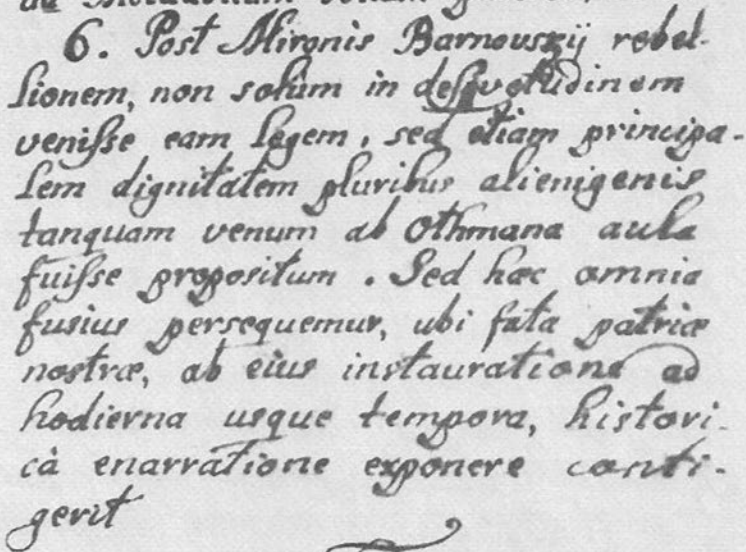 6. Post Mironis Barnouszij rebel-
lionem, non solùm in desvetudinem
venisse eam legem, sed etiam principa-
lem dignitatem pluribus alienigenis
tanquam venum ab Othmana aula
fuisse propositum. Sed hæc omnia
fusius persequemur, ubi fata patriæ
nostræ, ab eius instauratione ad
hodierna usque tempora, histori-
cà enarratione exponere conti-
gerit